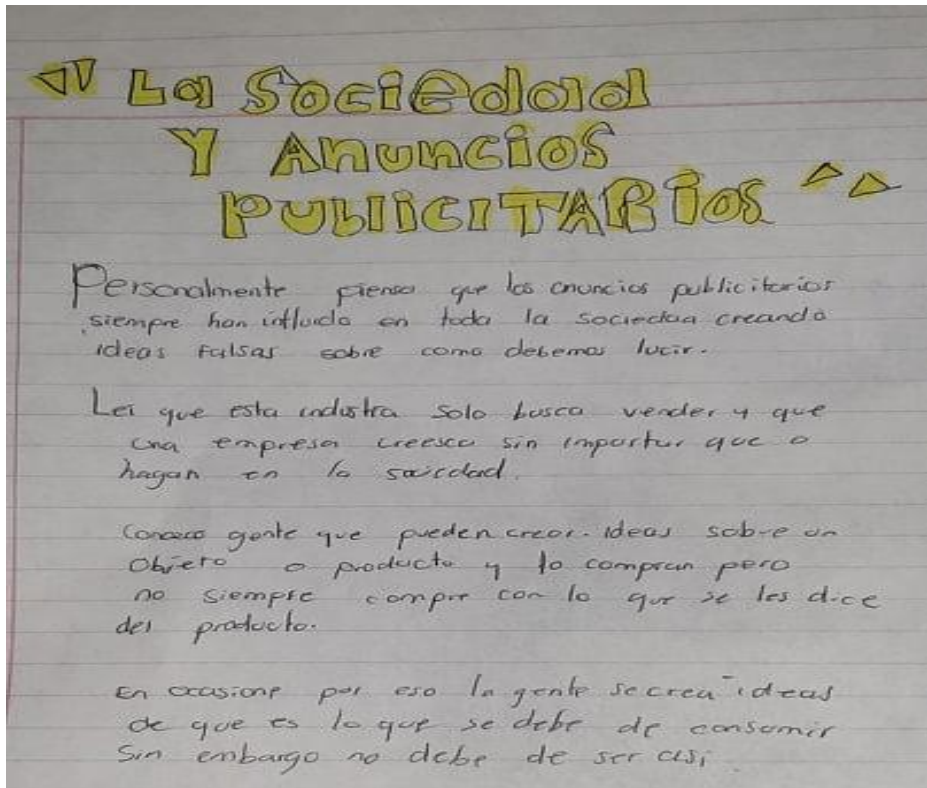 "La Sociedad
Y Anuncios
PUBLICITARIOS"
Personalmente pienso que los anuncios publicitarios
siempre han influido en toda la sociedad creando
ideas falsas sobre como debemos lucir.
Lei que esta industra solo busca vender y que
una empresa creesca sin importar que o
hagan en la sociedad.
Conozco gente que pueden creor. ideas sobre un
Objeto o producto y lo compran pero
no siempre compre con lo que se les dice
del producto.
En ocasione por eso la gente se crea ideas
de que es lo que se debe de consumir
Sin embargo no debe de ser asi